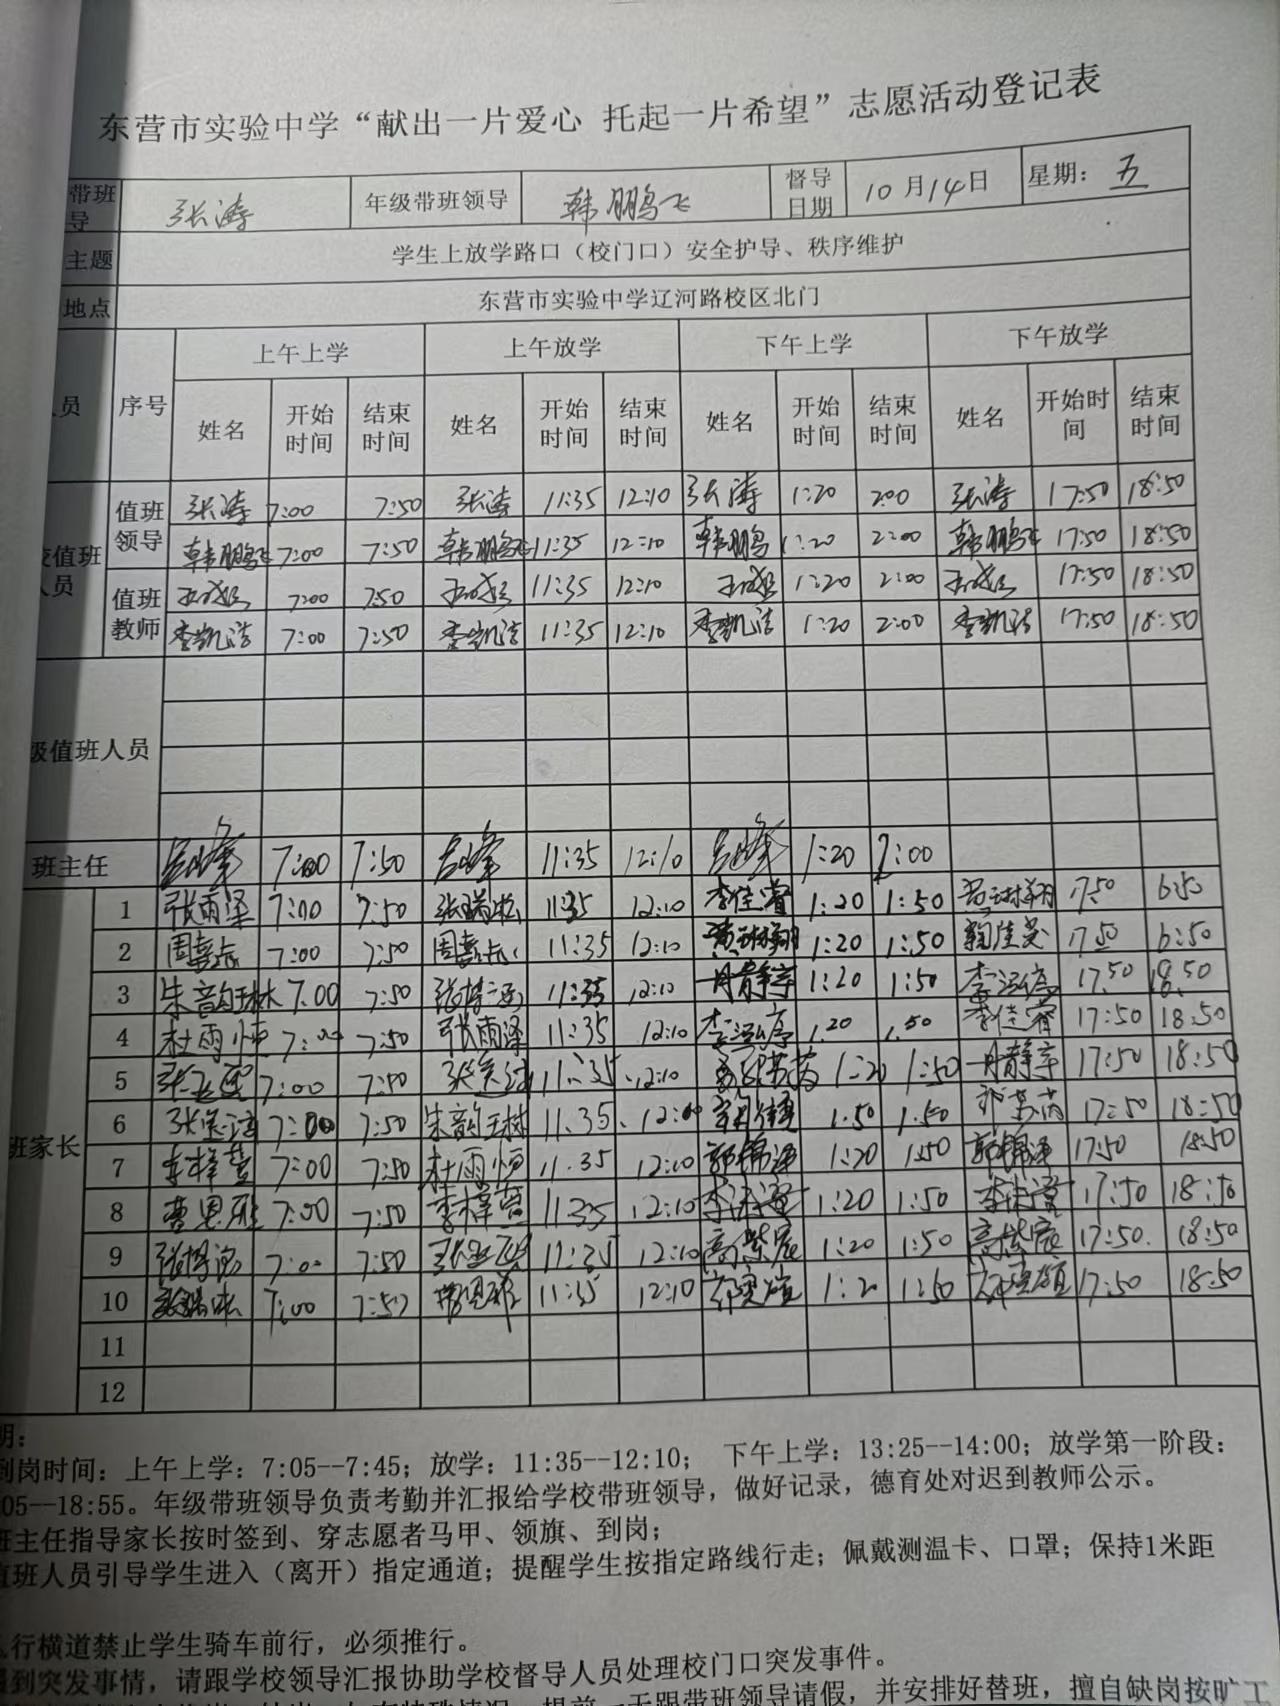 东营市实验中学“献出一片爱心 托起一片希望”志愿活动登记表
带班 导 张涛 年级带班领导 韩鹏飞 督导日期 10月14日 星期: 五
主题 学生上放学路口（校门口）安全护导、秩序维护
地点 东营市实验中学辽河路校区北门
员 序号 上午上学 上午放学 下午上学 下午放学
姓名 开始时间 结束时间 姓名 开始时间 结束时间 姓名 开始时间 结束时间 姓名 开始时间 结束时间
值班人员 值班领导 张涛 7:00 7:50 张涛 11:35 12:10 张涛 1:20 2:00 张涛 17:50 18:50
韩鹏飞 7:00 7:50 韩鹏飞 11:35 12:10 韩鹏 1:20 2:00 韩鹏飞 17:50 18:50
值班教师 7:00 7:50 11:35 12:10 1:20 2:00 17:50 18:50
李凯洁 7:00 7:50 李凯洁 11:35 12:10 李凯洁 1:20 2:00 李凯洁 17:50 18:50
级值班人员
班主任 7:00 7:50 11:35 12:10 1:20 2:00
班家长
1 张雨泽 7:00 7:50 张瑞松 11:35 12:10 李佳睿 1:20 1:50 黄琳翔 17:50 6:50
2 周嘉 7:00 7:50 周嘉 11:35 12:10 黄琳翔 1:20 1:50 17:50 6:50
3 朱韵林 7:00 7:50 张博 11:35 12:10 丹静宇 1:20 1:50 李泓 17:50 18:50
4 杜雨恒 7:00 7:50 张雨泽 11:35 12:10 李泓 1:20 1:50 李佳睿 17:50 18:50
5 张 7:00 7:50 张 11:35 12:10 1:20 1:50 丹静宇 17:50 18:50
6 张 7:00 7:50 朱韵林 11:35 12:00 1:50 1:50 17:50 18:50
7 李梓萱 7:00 7:50 杜雨恒 11:35 12:10 郭锦泽 1:20 1:50 郭锦泽 17:50 18:50
8 曹恩 7:00 7:50 李梓萱 11:35 12:10 李 1:20 1:50 李 17:50 18:50
9 张博 7:00 7:50 张 11:35 12:10 高紫宸 1:20 1:50 高紫宸 17:50 18:50
10 7:00 7:50 曹恩 11:35 12:10 1:20 1:50 17:50 18:50
11
12
明：
到岗时间：上午上学：7:05--7:45；放学：11:35--12:10； 下午上学：13:25--14:00；放学第一阶段：
05--18:55。年级带班领导负责考勤并汇报给学校带班领导，做好记录，德育处对迟到教师公示。
班主任指导家长按时签到、穿志愿者马甲、领旗、到岗；
值班人员引导学生进入（离开）指定通道；提醒学生按指定路线行走；佩戴测温卡、口罩；保持1米距
人行横道禁止学生骑车前行，必须推行。
遇到突发事情，请跟学校领导汇报协助学校督导人员处理校门口突发事件。
提前一天跟带班领导请假，并安排好替班，擅自缺岗按旷工